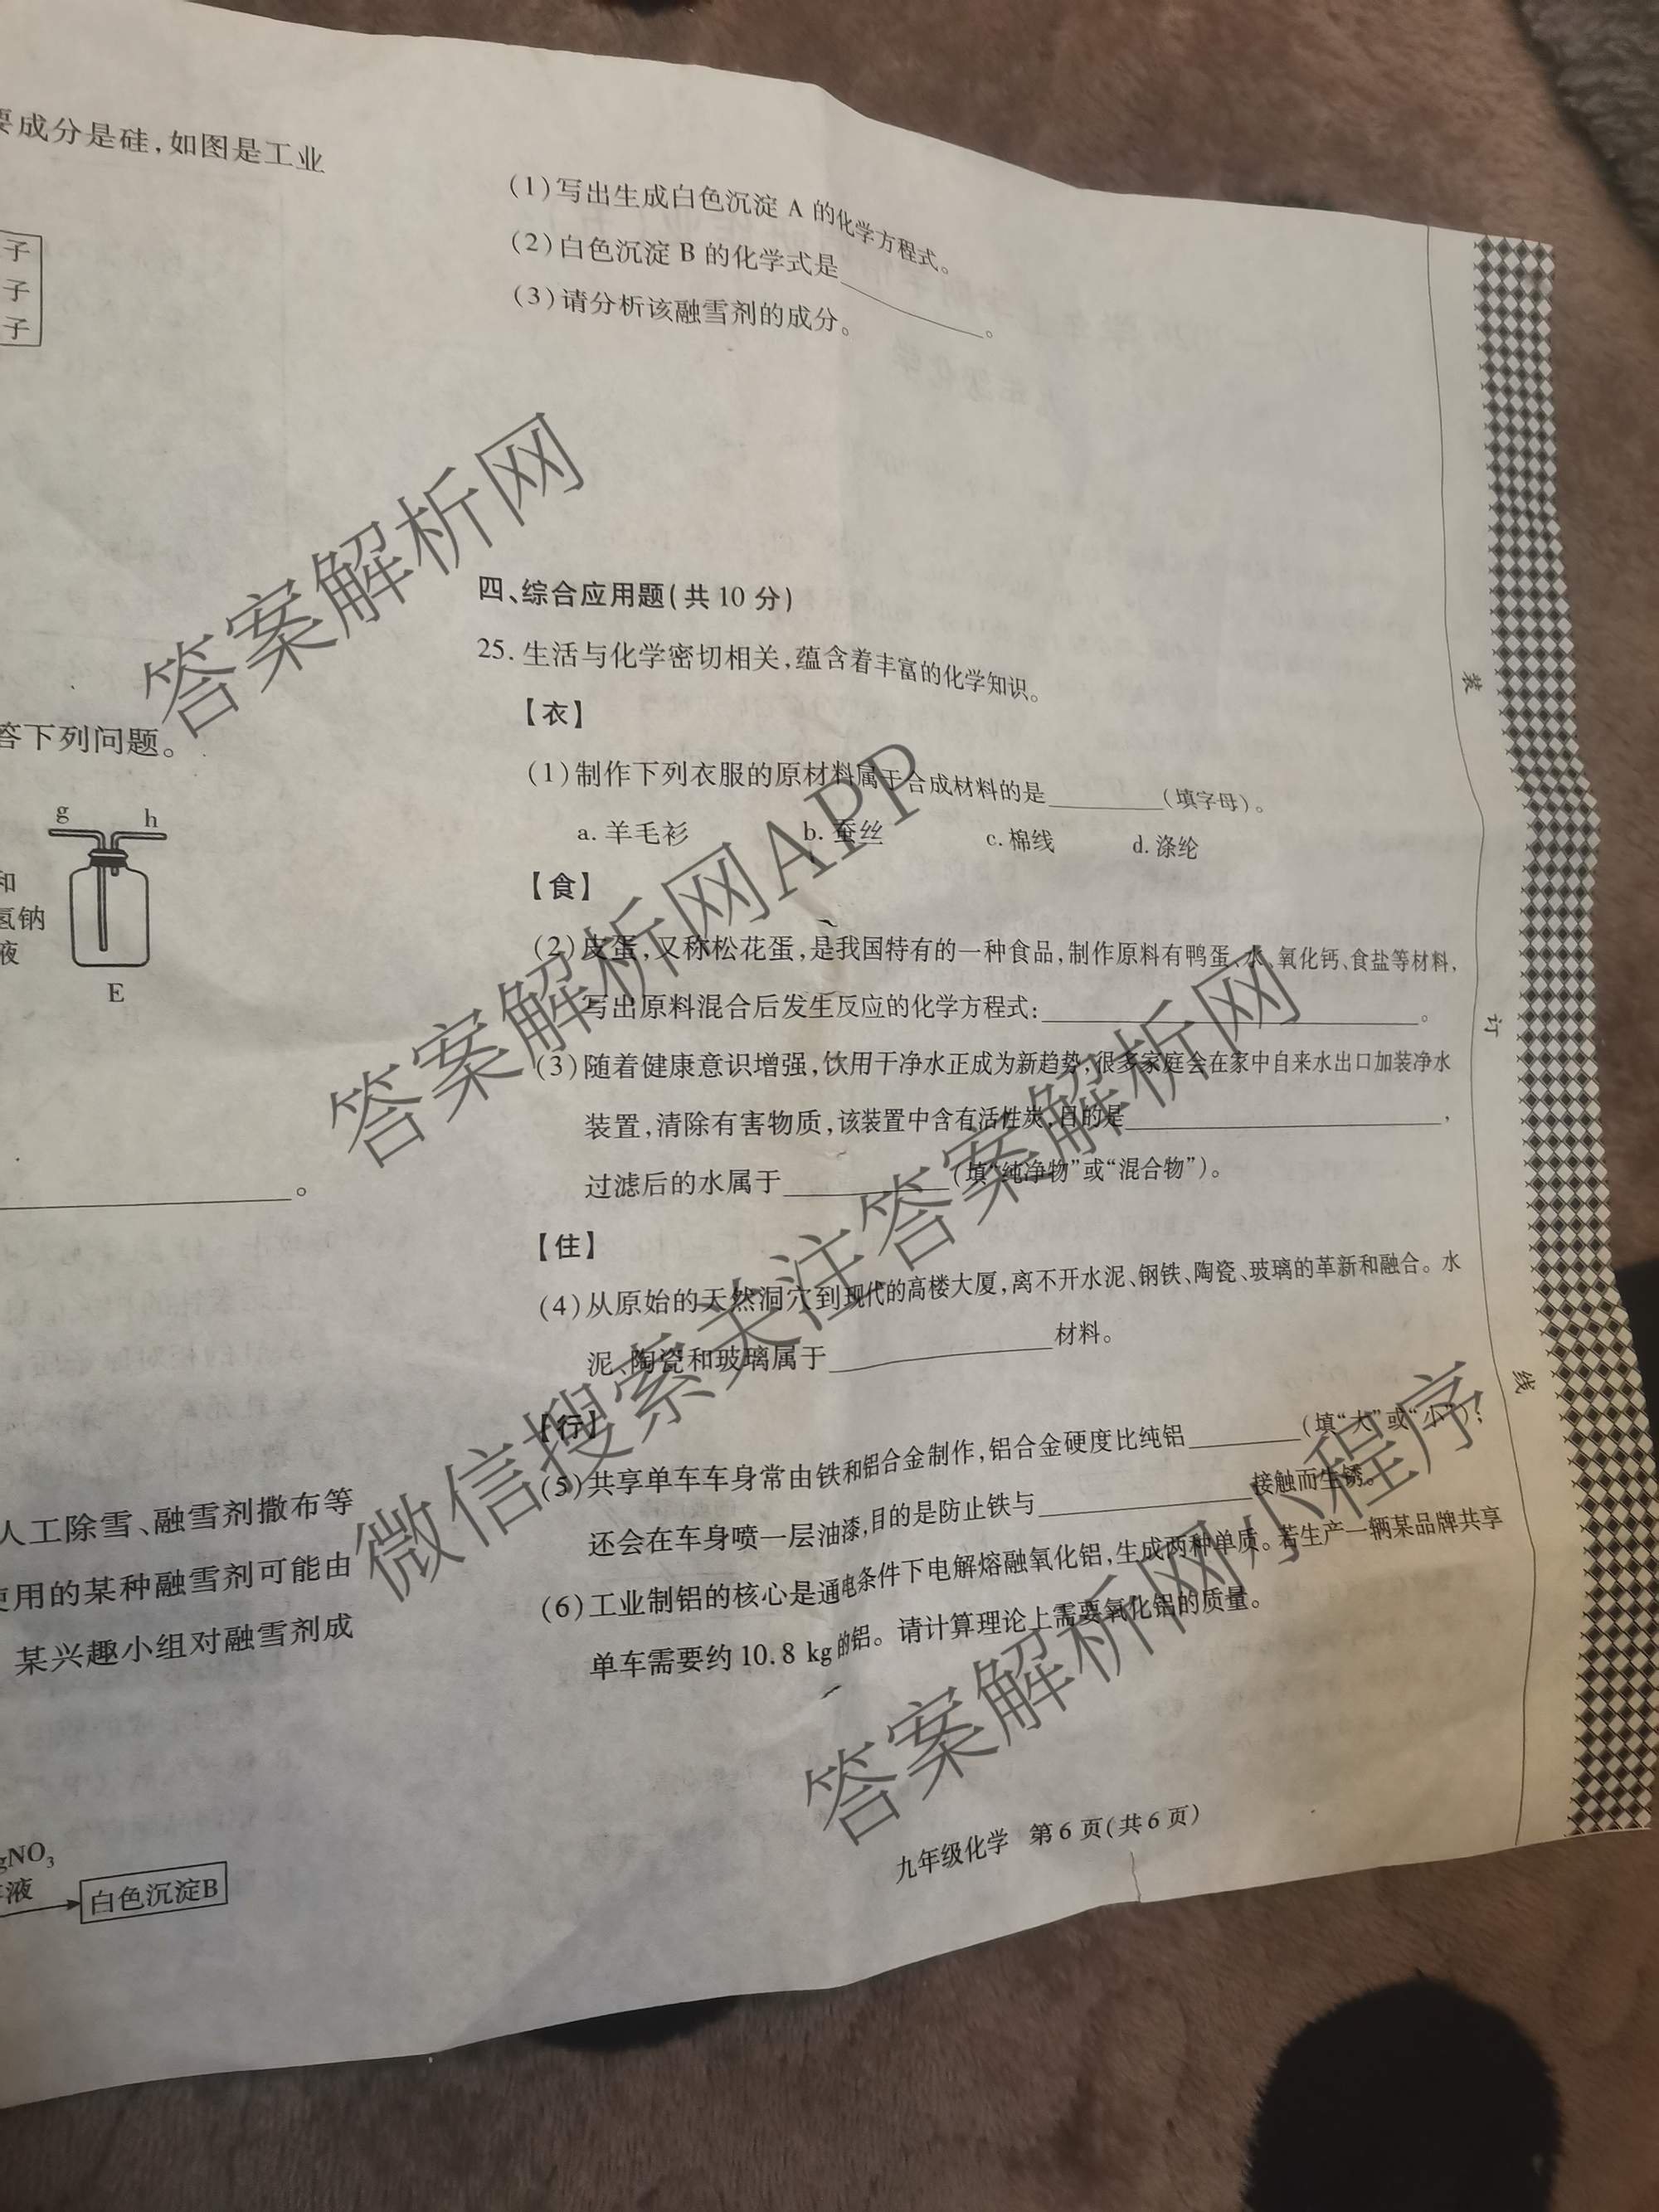 要成分是硅,如图是工业
子
子
子
答下列问题。
g
h
和
氢钠
液
E
。
人工除雪、融雪剂撒布等
使用的某种融雪剂可能由
某兴趣小组对融雪剂成
gNO3
溶液
白色沉淀B
(1)写出生成白色沉淀 A 的化学方程式。
(2)白色沉淀 B 的化学式是________。
(3)请分析该融雪剂的成分。
四、综合应用题(共 10 分)
25. 生活与化学密切相关,蕴含着丰富的化学知识。
【衣】
(1)制作下列衣服的原材料属于合成材料的是________(填字母)。
a. 羊毛衫 b. 蚕丝 c. 棉线 d. 涤纶
【食】
(2)皮蛋,又称松花蛋,是我国特有的一种食品,制作原料有鸭蛋、水、氧化钙、食盐等材料,
写出原料混合后发生反应的化学方程式:________。
(3)随着健康意识增强,饮用干净水正成为新趋势,很多家庭会在家中自来水出口加装净水
装置,清除有害物质,该装置中含有活性炭,目的是________,
过滤后的水属于________(填“纯净物”或“混合物”)。
【住】
(4)从原始的天然洞穴到现代的高楼大厦,离不开水泥、钢铁、陶瓷、玻璃的革新和融合。水
泥、陶瓷和玻璃属于________材料。
【行】
(5)共享单车车身常由铁和铝合金制作,铝合金硬度比纯铝________(填“大”或“小”);
还会在车身喷一层油漆,目的是防止铁与________接触而生锈。
(6)工业制铝的核心是通电条件下电解熔融氧化铝,生成两种单质。若生产一辆某品牌共享
单车需要约 10.8 kg 的铝。请计算理论上需要氧化铝的质量。
九年级化学 第 6 页(共 6 页)
装
订
线
答案解析网
答案解析网APP
微信搜索关注答案解析网
答案解析网小程序